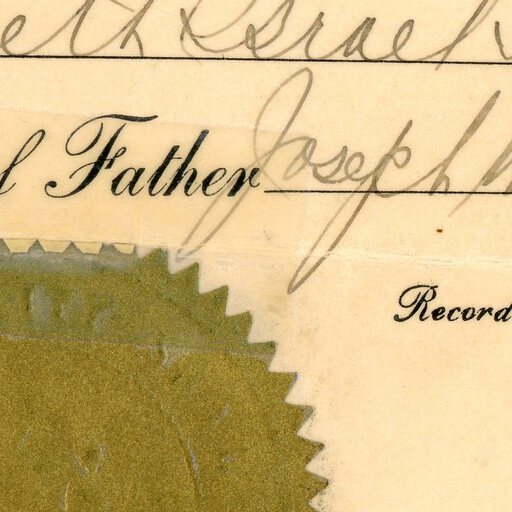 eth Israel
l Father Joseph
Record